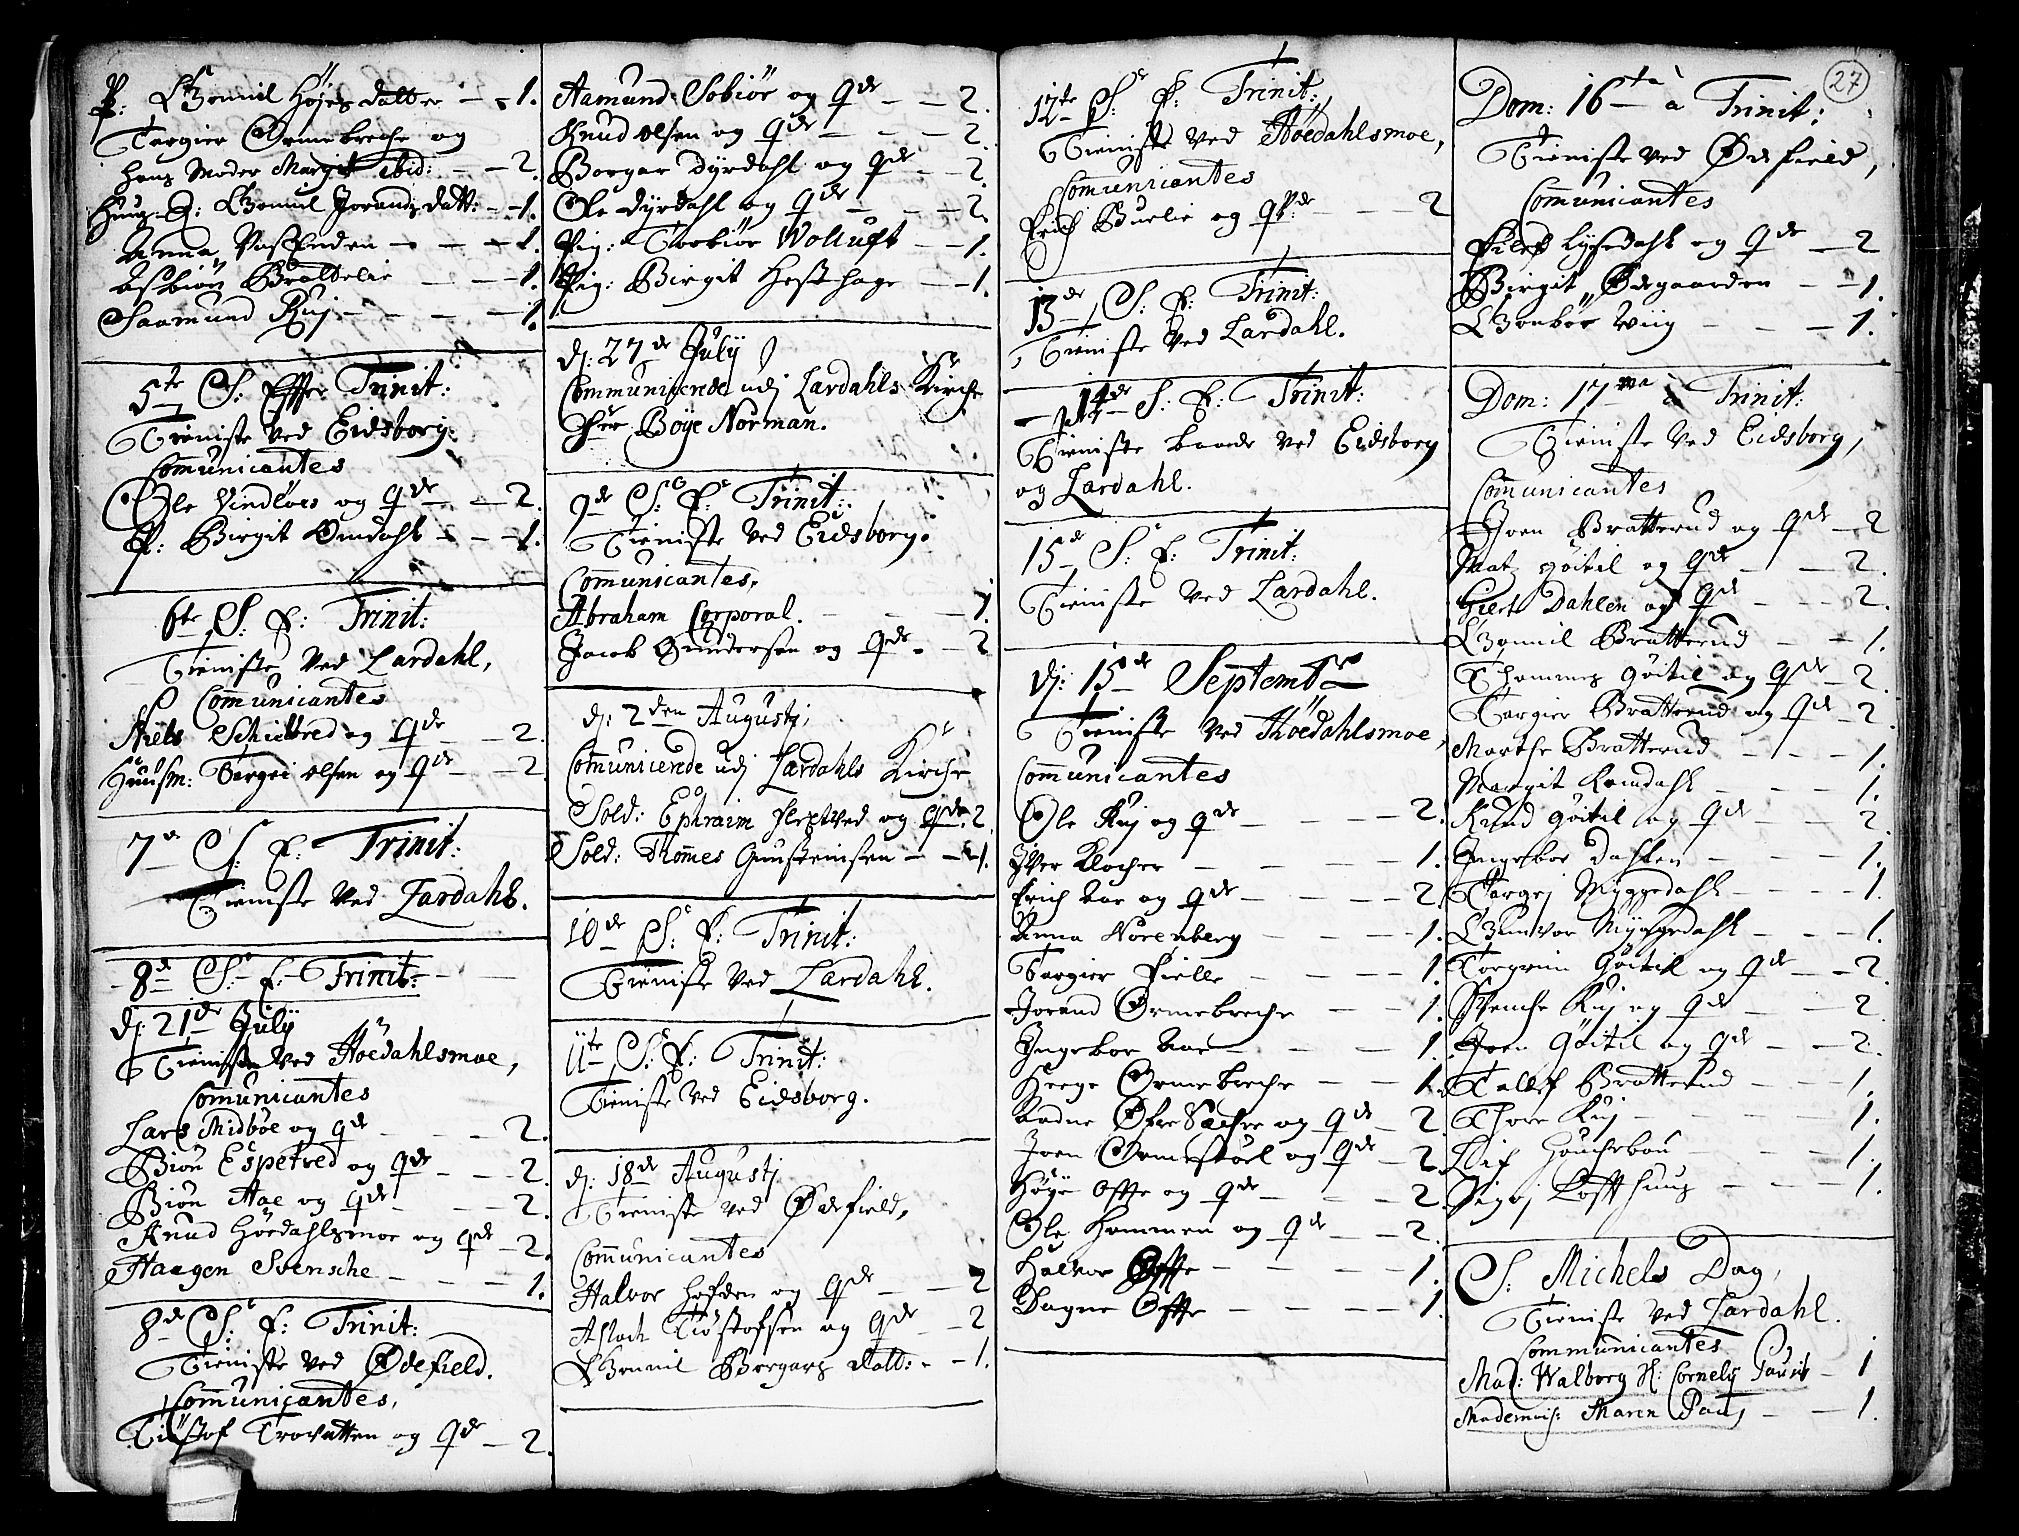 P: Gunnil Høyesdatter — 1.
Torgier Ormebreche og
hans Moder Margit ibid: — 2.
Huus-q: Gunnil Jorandsdatt: — 1.
Anna Vaslenden — 1.
Asbiøn Brattelie — 1.
Saamund Ruj — 1.
5te S: Effter Trinit:
Tieniste ved Eidsborg.
Communicantes
Ole Vindloes og qde — 2.
P: Birgit Omdahl — 1.
6te S: E: Trinit:
Tieniste ved Lardahl,
Communicantes
Niels Schittred og qde — 2.
Huusm: Torgei olsen og qde — 2
7de S: E: Trinit:
Tieniste ved Lardahl.
8de S: E: Trinit:
dj: 21de July
Tieniste ved Höedahlsmoe,
Communicantes
Lars Midböe og qde — 2.
Biön Espetved og qde — 2.
Biön Aae og qde — 2.
Knud Höedahlsmoe og qde — 2.
Haagen Svensche — 1.
8de S: E: Trinit:
Tieniste ved Ødefield.
Communicantes,
Tiöstof Trovatten og qde — 2.
Aamund Sobiör og qde — 2.
Knud olsen og qde — 2.
Borgar dyrdahl og qde — 2.
Ole dyrdahl og qde — 2.
Pig: Torbiör Wolluft — 1.
Pig: Birgit Hesthage — 1.
dj: 27de July
Communicerede udj Lardahls Kirche
Herr Böye Norman.
9de S: E: Trinit:
Tieniste ved Eidsborg.
Communicantes,
Abraham Corporal. — 1.
Jacob Gundersen og qde. — 2
dj: 2den Augustj,
Communicerede udj Lardahls Kirche
Sold: Ephraim Sleptved og qde. 2.
Sold: Thommes Gunsteinsen — 1.
10de S: E: Trinit:
Tieniste ved Lardahl.
11te S: E: Trinit:
Tieniste ved Eidsborg.
dj: 18de Augustj
Tieniste ved Ødefield,
Communicantes
Halvor Hofden og qde — 2
Aslach Tiöstofsen og qde — 2
Gunnil Borgars datt: — 1.
12te S: E: Trinit:
Tieniste ved Höedahlsmoe,
Communicantes
Erich Buelie og qde: — 2
13de S: E: Trinit:
Tieniste ved Lardahl.
14de S: E: Trinit:
Tieniste baade ved Eidsborg
og Lardahl.
15de S: E: Trinit:
Tieniste ved Lardahl.
dj: 15de Septembr
Tieniste ved Höedahlsmoe,
Communicantes
Ole Ruj og qde — 2.
Iver Klocher — 1.
Erich Aae og qde — 2.
Anna Norenberg — 1.
Torgier Fielle — 1.
Jorand Ormebreche — 1.
Ingebor Aae — 1.
Herge Ormebreche — 1.
Aadne Øfre Sechse og qde — 2.
Joen Ormestöel og qde — 2.
Höye Offte og qde — 2.
Ole Hommen og qde — 2.
Halvor Offte — 1.
Dagne Offte — 1.
27
Dom: 16ta à Trinit:
Tieniste ved Ødefield,
Communicantes
Eilef Lysedahl og qde — 2
Birgit Ødegaarden — 1.
Gunbör Wiig — 1.
Dom: 17ma à Trinit:
Tieniste ved Eidsborg,
Communicantes
Joen Bratterud og qde — 2
Mats göitil og qde — 2.
Giert Dahlen og qde — 2.
Gunnil Bratterud — 1.
Thommes Göitil og qde — 2.
Torgier Bratterud og qde — 2.
Marthe Bratterud — 1.
Margit Romdahl — 1.
Knud göitil og qde — 2.
Ingebor Dahlen — 1.
Torgej Myggedahl — 1.
Gunvor Myggedahl — 1.
Torgrim Göitil og qde — 2.
Svenche Ruj og qde — 2.
Joen Göitil og qde — 2.
Tallef Bratterud — 1.
Thore Ruj — 1.
Lif Houchebou — 1.
Signj Loffthuus — 1.
S: Michels Dag,
Tieniste ved Lardahl.
Communicantes
Mad: Walborg H: Cornely Pauls — 1
Mademois: Maren Paus — 1.